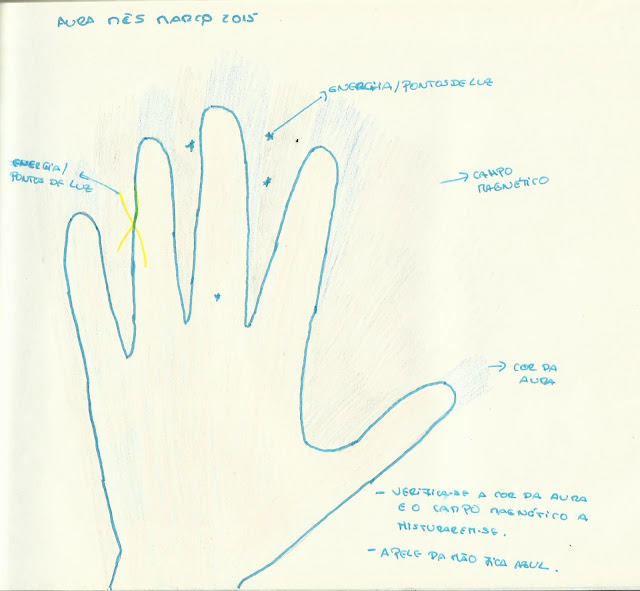 AURA MÊS MARÇO 2015
ENERGIA/PONTOS DE LUZ
ENERGIA/
PONTOS DE LUZ
CAMPO
MAGNÉTICO
COR DA
AURA
- VERIFICA-SE A COR DA AURA
E O CAMPO MAGNÉTICO A
MISTURAREM-SE.
- A PELE DA MÃO FICA AZUL.